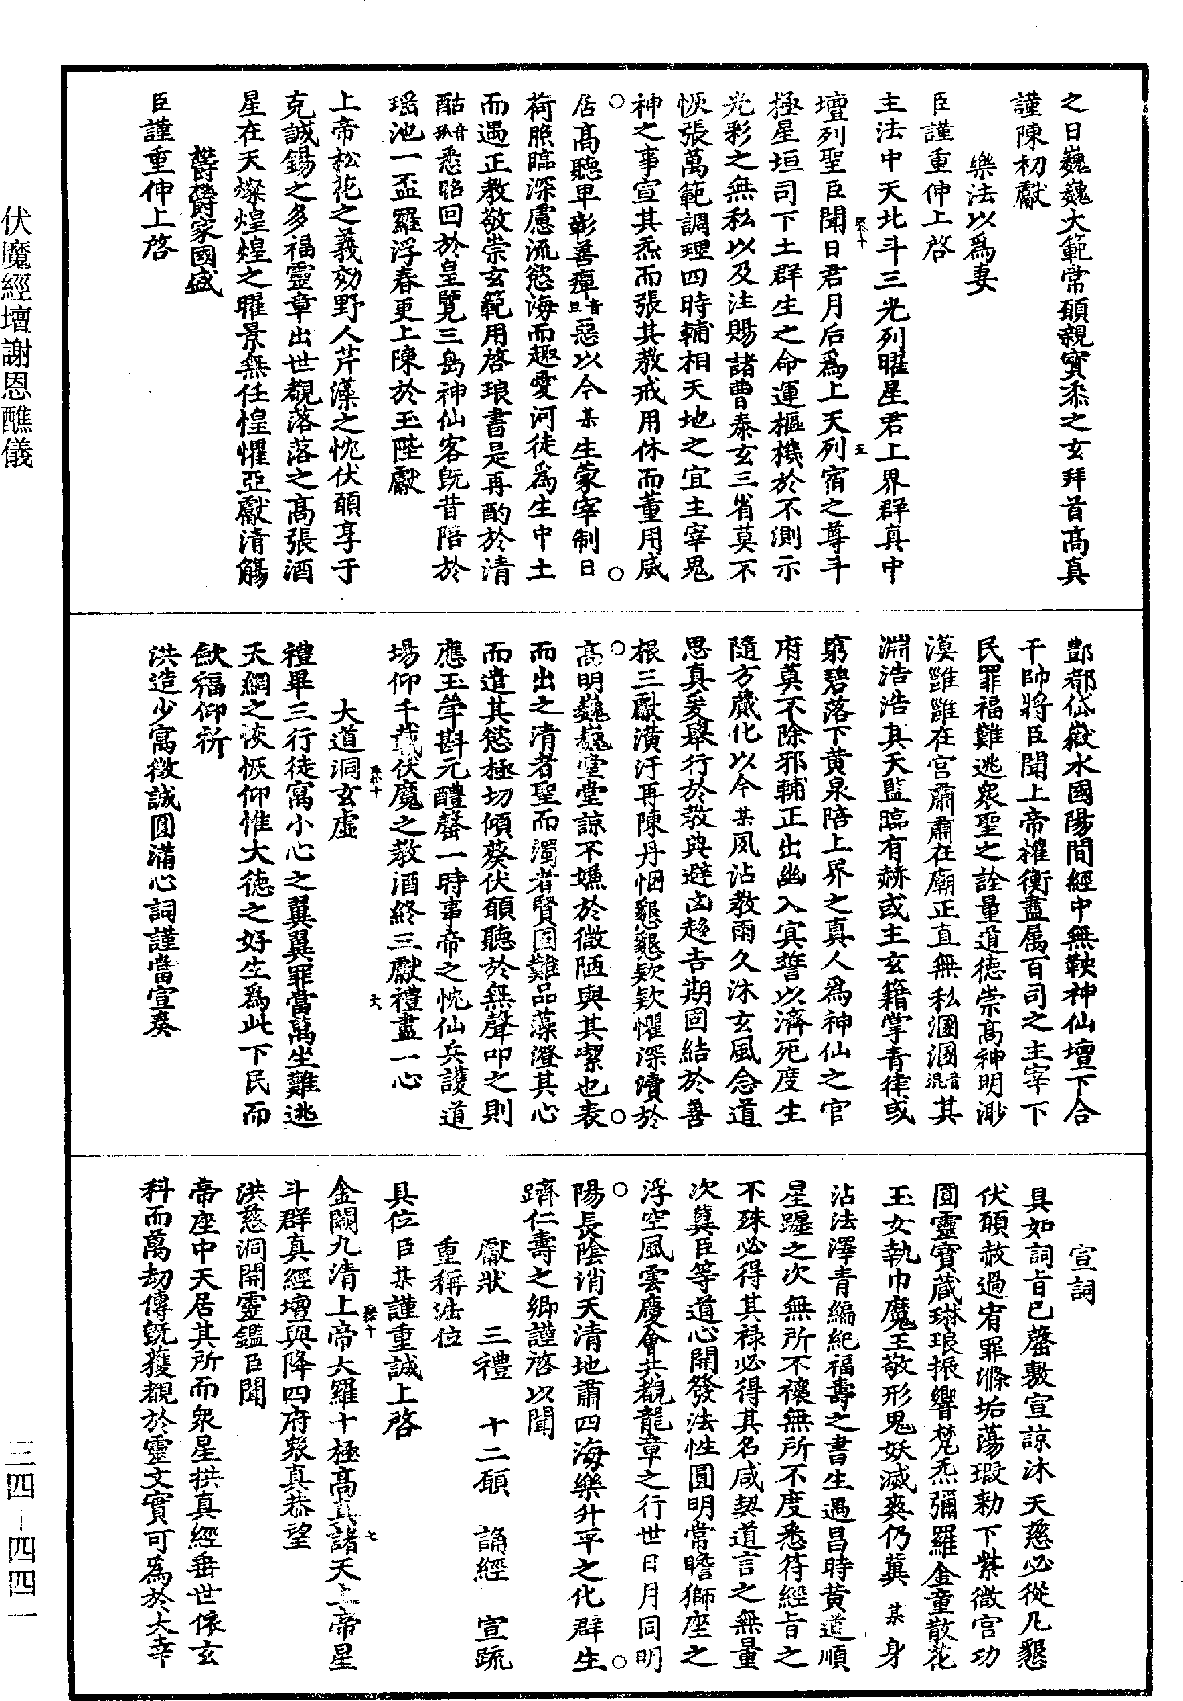 之日巍巍大範常願親寶炁之玄拜首高真
謹陳初獻
樂法以爲妻
臣謹重伸上啓
主法中天北斗三光列曜星君上界群真中
壇列聖臣聞日君月后爲上天列宿之尊斗
極星垣司下土群生之命運樞機於不測示
光彩之無私以及注賜諸曹泰玄三省莫不
恢張萬範調理四時輔相天地之宜主宰鬼
神之事宣其炁而張其教戒用休而董用威
居高聽卑彰善癉音旦惡以今某生蒙宰制日
荷照臨深慮流慾海而趣愛河徒爲生中土
而遇正教敬崇玄範用啓琅書是再酌於清
酤音狐悉昭回於皇覽三島神仙客既昔陪於
瑶池一盃羅浮春更上陳於玉陛獻
上帝松花之義効野人芹藻之忱伏願享于
克誠錫之多福靈章出世覩落落之高張酒
星在天燦煌煌之曜景無任惶懼亞獻清觴
欝欝家國盛
臣謹重伸上啓
酆都岱嶽水國陽間經中無鞅神仙壇下合
千帥將臣聞上帝權衡盡属百司之主宰下
民罪福難逃衆聖之詮量道德崇高神明渺
漠雝雝在宮肅肅在廟正直無私溷溷音混其
淵浩浩其天監臨有赫或主玄籍掌青律或
窮碧落下黄泉陪上界之真人爲神仙之官
府莫不除邪輔正出幽入冥誓以濟死度生
隨方藏化以今某夙沾教雨久沐玄風念道
思真爰舉行於教典避凶趍吉期固結於善
根三獻潢汙再陳丹悃懇懇欵欵懼深瀆於
高明巍巍堂堂諒不嫌於微陋與其潔也表
而出之清者聖而濁者賢固難品藻澄其心
而遣其慾極切傾葵伏願聽於無聲叩之則
應玉斝斟元醴罄一時事帝之忱仙兵護道
場仰千載伏魔之教酒終三獻禮盡一心
大道洞玄虛
禮畢三行徒寓小心之翼翼罪當萬坐難逃
天網之恢恢仰惟大德之好生爲此下民而
歛福仰祈
洪造少寓微誠圓滿心詞謹當宣奏
宣詞
具如詞言已罄敷宣諒沐天慈必從凡懇
伏願赦過宥罪滌垢蕩瑕勑下紫微宮功
圓靈寶藏琳琅振響梵炁彌羅金童散花
玉女執巾魔王敬形鬼妖滅爽仍冀某身
沾法澤青編紀福壽之書生遇昌時黄道順
星躔之次無所不禳無所不度悉符經旨之
不殊必得其禄必得其名咸契道言之無量
次冀臣等道心開發法性圓明常瞻獅座之
浮空風雲慶會共覩龍章之行世日月同明
陽長陰消天清地肅四海樂升平之化群生
躋仁壽之鄉謹啓以聞
獻狀　三禮　十二願　誦經　宣疏
重稱法位
具位臣某謹重誠上啓
金闕九清上帝大羅十極高真諸天上帝星
斗群真經壇與降四府衆真恭望
洪慈洞開靈鑑臣聞
帝座中天居其所而衆星拱真經垂世依玄
科而萬劫傳既獲覩於靈文實可爲於大幸
伏魔經壇謝恩醮儀
三四－四四一